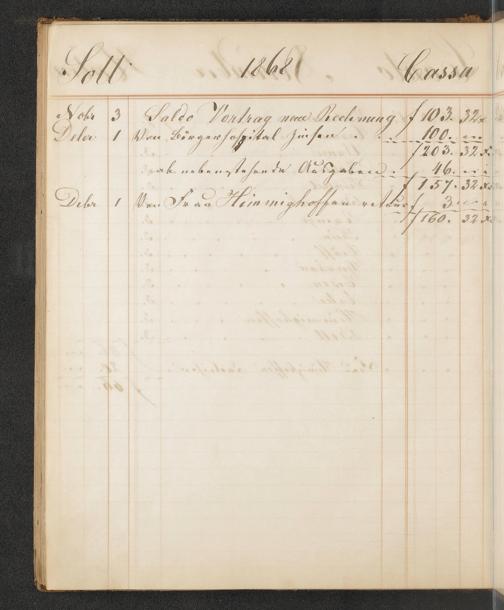 Soll 1868 Cassa
Nobr 3 Saldo Vortrag neue Rechnung f 103. 32x
Debr 1 Von Bürgerhospital Zinsen . . . 100. —
f 203. 32
ab nebenstehende Ausgaben . . 46. —
f 157. 32x
Debr 1 Von Frau Himmighoffen retour f 3 —
f 160. 32x